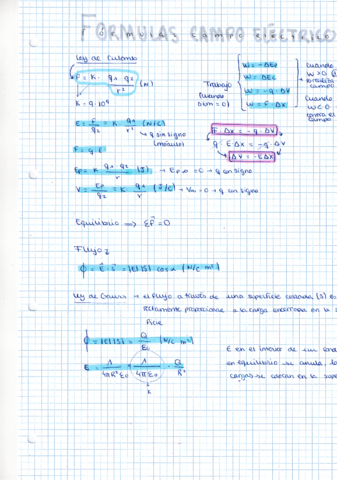 FÓRMULAS CAMPO ELÉCTRICO
Ley de Coulomb
F = K · q1 · q2 / r² (N)
K = 9·10⁹
E = F/q2 = K · q1/r² (N/C)
q sin signo
(módulo)
F = q·E
Ep = K q1 · q2 / r (J) → Ep∞ = 0 → q con signo
V = Ep/q2 = K q1/r (J/C) → V∞ = 0 → q con signo
Equilibrio ⟹ ΣF = 0
Trabajo
Cuando
W = -ΔEp
W = ΔEc
W = -q·ΔV
W = F·ΔX
Cuando
W > 0
campo
Cuando
W < 0
contra el
campo
F·ΔX = -q·ΔV
q·E·ΔX = -q·ΔV
ΔV = -EΔX
Flujo
ϕ = E·S = |E||S| cos α (N/C m²)
Ley de Gauss → el flujo a través de una superficie cerrada, (S) es
directamente proporcional a la carga encerrada en la
ϕ = |E||S| = Q/ε0 (N/C m²)
E = 1/4πR²ε0 = 1/4πε0 · Q/R²
K
E en el interior de un
en equilibrio se anula, la
cargas se colocan en la